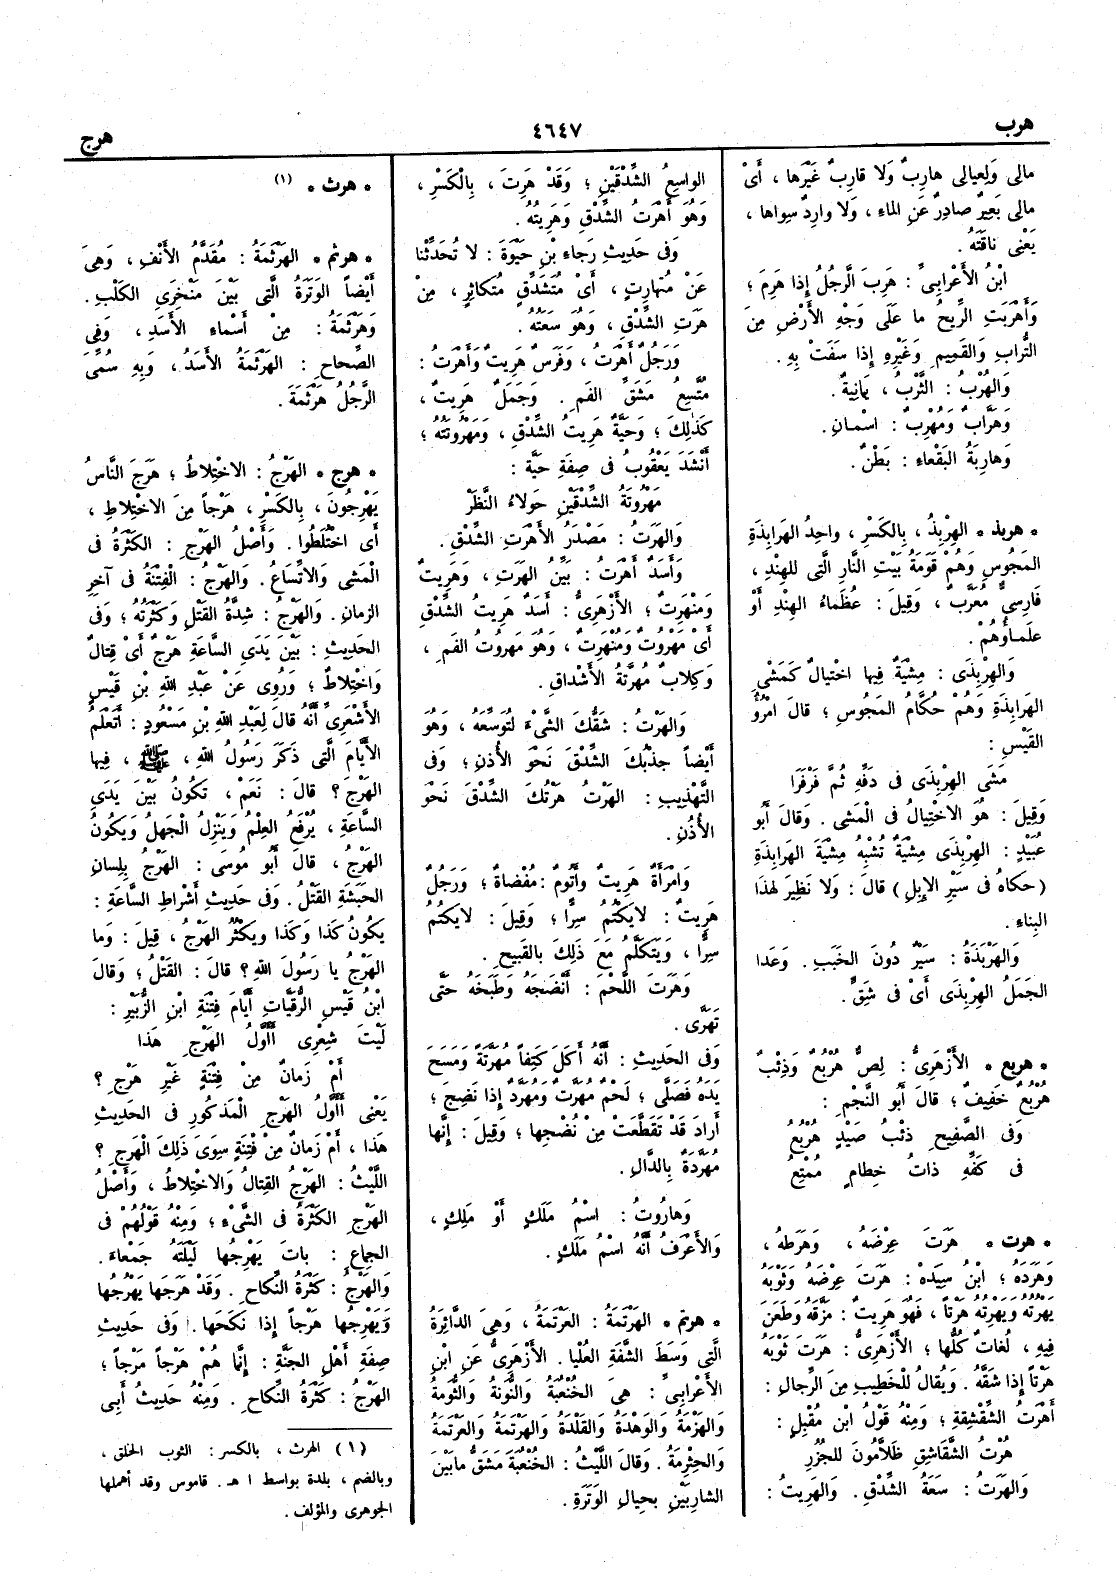 هرب
٤٦٤٧
هرج
مالى وَلِعِيالى هارِبٌ وَلا قارِبٌ غَيْرَها ، أَىْ
مالى بَعِيرٌ صادِرٌ عَنِ الماءِ ، وَلا وارِدٌ سِواها ،
يَعْنى ناقَتَهُ .
ابْنُ الأَعْرابِىِّ : هَرِبَ الرَّجُلُ إِذا هَرِمَ ؛
وَأَهْرَبَتِ الرِّيحُ ما عَلَى وَجْهِ الأَرْضِ مِنَ
التُّرابِ والقَمِيمِ وَغَيْرِهِ إِذا سَفَتْ بِهِ .
وَالهُرْبُ : الثَّرْبُ ، يَمانِيَةٌ .
وَهَرَّابٌ وَمُهْرِبٌ : اسْمانِ .
وَهارِبَةُ البَقْعاءِ : بَطْنٌ .
* هربذ * الهِرْبِذُ ، بِالكَسْرِ ، واحِدُ الهَرابِذَةِ
المَجُوسِ وَهُمْ قَوَمَةُ بَيْتِ النَّارِ الَّتى للهِنْدِ ،
فارِسِىٌّ مُعَرَّبٌ ، وَقِيلَ : عُظَماءُ الهِنْدِ أَوْ
عُلَماؤُهُمْ .
وَالهِرْبِذَى : مِشْيَةٌ فِيها اخْتِيالٌ كَمَشْىِ
الهَرابِذَةِ وَهُمْ حُكَّامُ المَجُوسِ ؛ قالَ امْرُؤُ
القَيْسِ :
مَشَى الهِرْبِذَى فى دَفِّهِ ثُمَّ فَرْفَرَا
وَقِيلَ : هُوَ الاخْتِيالُ فى الْمَشىِ . وَقالَ أَبُو
عُبَيْدٍ : الهِرْبِذَى مِشْيَةٌ تُشْبِهُ مِشْيَةَ الهَرابِذَةِ
( حَكاهُ فى سَيْرِ الإِبِلِ ) قالَ : وَلا نَظِيرَ لِهذا
البِناءِ .
وَالهَرْبَذَةُ : سَيْرٌ دُونَ الخَبَبِ . وَعَدا
الجَمَلُ الهِرْبِذَى أَىْ فى شِقٍّ .
* هربع * الأَزْهَرِىُّ : لِصٌّ هُرْبُعٌ وَذِئْبٌ
هُرْبُعٌ خَفِيفٌ ؛ قالَ أَبُو النَّجْمِ :
وَفى الصَّفِيحِ ذِئْبُ صَيْدٍ هُرْبُعُ
فى كَفِّهِ ذاتُ خِطامٍ مُمْتِعُ
* هرت * هَرَتَ عِرْضَهُ ، وَهَرَطَهُ ،
وَهَرَدَهُ ؛ ابْنُ سِيدَهْ : هَرَتَ عِرْضَهُ وَثَوْبَهُ
يَهْرُتُهُ وَيَهْرِتُهُ هَرْتاً ، فَهُوَ هَرِيتٌ : مَزَّقَهُ وَطَعَنَ
فِيهِ ، لُغاتٌ كُلُّها ؛ الأَزْهَرِىُّ : هَرَتَ ثَوْبَهُ
هَرْتاً إِذا شَقَّهُ . وَيُقالُ لِلْخَطِيبِ مِنَ الرِّجالِ :
أَهْرَتُ الشِّقْشِقَةِ ؛ وَمِنْهُ قَوْلُ ابْنِ مُقْبِلٍ :
هُرْتُ الشَّقاشِقِ ظَلَّامُونَ لِلْجُزُرِ
وَالهَرَتُ : سَعَةُ الشِّدْقِ . وَالهَرِيتُ :
الواسِعُ الشِّدْقَيْنِ ؛ وَقَدْ هَرِتَ ، بِالْكَسْرِ ،
وَهُوَ أَهْرَتُ الشِّدْقِ وَهَرِيتُهُ .
وَفى حَدِيثِ رَجاءِ بْنِ حَيْوَةَ : لا تُحَدِّثْنا
عَنْ مُتَهارِتٍ ، أَىْ مُتَشَدِّقٍ مُتَكاثِرٍ ، مِنْ
هَرَتِ الشِّدْقِ ، وَهُوَ سَعَتُهُ .
وَرَجُلٌ أَهْرَتُ ، وَفَرَسٌ هَرِيتٌ وَأَهْرَتُ :
مُتَّسِعُ مَشَقِّ الفَمِ . وَجَمَلٌ هَرِيتٌ ،
كَذلِكَ ؛ وَحَيَّةٌ هَرِيتُ الشِّدْقِ ، وَمَهْرُوتَتُهُ ؛
أَنْشَدَ يَعْقُوبُ فى صِفَةِ حَيَّةٍ :
مَهْرُوتَةُ الشِّدْقَيْنِ حَوْلاءُ النَّظَرْ
وَالهَرَتُ : مَصْدَرُ الأَهْرَتِ الشِّدْقِ .
وَأَسَدٌ أَهْرَتُ : بَيِّنُ الهَرَتِ ، وَهَرِيتٌ
وَمُنْهَرِتٌ ؛ الأَزْهَرِىُّ : أَسَدٌ هَرِيتُ الشِّدْقِ
أَىْ مَهْرُوتٌ وَمُنْهَرِتٌ ، وَهُوَ مَهْرُوتُ الفَمِ ،
وَكِلابٌ مُهَرَّتَةُ الأَشْداقِ .
وَالهَرْتُ : شَقُّكَ الشَّىْءَ لِتُوَسِّعَهُ ، وَهُوَ
أَيْضاً جَذْبُكَ الشِّدْقَ نَحْوَ الأُذُنِ ؛ وَفى
التَّهْذِيبِ : الهَرْتُ هَرْتُكَ الشِّدْقَ نَحْوَ
الأُذُنِ .
وَامْرَأَةٌ هَرِيتٌ وَأَتُومٌ : مُفْضاةٌ ؛ وَرَجُلٌ
هَرِيتٌ : لا يَكْتُمُ سِرًّا ؛ وَقِيلَ : لا يَكْتُمُ
سِرًّا ، وَيَتَكَلَّمُ مَعَ ذَلِكَ بِالقَبِيحِ .
وَهَرَتَ اللَّحْمَ : أَنْضَجَهُ وَطَبَخَهُ حَتَّى
تَهَرَّى .
وَفى الحَدِيثِ : أَنَّهُ أَكَلَ كَتِفاً مُهَرَّتَةً وَمَسَحَ
يَدَهُ فَصَلَّى ؛ لَحْمٌ مُهَرَّتٌ وَمُهَرَّدٌ إِذا نَضِجَ ؛
أَرادَ قَدْ تَقَطَّعَتْ مِنْ نُضْجِها ؛ وَقِيلَ : إِنَّها
مُهَرَّدَةٌ بِالدَّالِ .
وَهارُوتُ : اسْمُ مَلَكٍ أَوْ مَلِكٍ ،
وَالأَعْرَفُ أَنَّهُ اسْمُ مَلَكٍ .
* هرتم * الهَرْتَمَةُ : العَرْتَمَةُ ، وَهِىَ الدَّائِرَةُ
الَّتى وَسَطَ الشَّفَةِ العُلْيا . الأَزْهَرِىُّ عَنِ ابْنِ
الأَعْرابِىِّ : هِىَ الخُنْعَبَةُ وَالنُّونَةُ وَالثُّومَةُ
وَالهَزْمَةُ وَالوَهْدَةُ وَالقَلْدَةُ وَالهَرْتَمَةُ وَالعَرْتَمَةُ
وَالحِثْرِمَةُ . وَقالَ اللَّيْثُ : الخُنْعَبَةُ مَشَقُّ ما بَيْنَ
الشارِبَيْنِ بِحِيالِ الوَتَرَةِ .
* هرث * (١)
* هرثم * الهَرْثَمَةُ : مُقَدَّمُ الأَنْفِ ، وَهِىَ
أَيْضاً الوَتَرَةُ الَّتى بَيْنَ مَنْخَرَىِ الكَلْبِ .
وَهَرْثَمَةُ : مِنْ أَسْماءِ الأَسَدِ ، وَفِى
الصِّحاحِ : الهَرْثَمَةُ الأَسَدُ ، وَبِهِ سُمِّىَ
الرَّجُلُ هَرْثَمَةَ .
* هرج * الهَرْجُ : الاخْتِلاطُ ؛ هَرَجَ النَّاسُ
يَهْرِجُونَ ، بِالكَسْرِ ، هَرْجاً مِنَ الاخْتِلاطِ ،
أَى اخْتَلَطُوا . وَأَصْلُ الهَرْجِ : الكَثْرَةُ فى
الْمَشى وَالاتِّساعُ . وَالهَرْجُ : الْفِتْنَةُ فى آخِرِ
الزمانِ . وَالهَرْجُ : شِدَّةُ القَتْلِ وَكَثْرَتُهُ ؛ وَفى
الحَدِيثِ : بَيْنَ يَدَىِ السَّاعَةِ هَرْجٌ أَىْ قِتالٌ
وَاخْتِلاطٌ ؛ وَرُوِىَ عَنْ عَبْدِ اللهِ بْنِ قَيْسٍ
الأَشْعَرِىِّ أَنَّهُ قالَ لِعَبْدِ اللهِ بْنِ مَسْعُودٍ : أَتَعْلَمُ
الأَيَّامَ الَّتى ذَكَرَ رَسُولُ اللهِ ، ﷺ ، فِيها
الهَرْجَ ؟ قالَ : نَعَمْ ، تَكُونُ بَيْنَ يَدَىِ
السَّاعَةِ ، يُرْفَعُ العِلْمُ وَيَنْزِلُ الْجَهْلُ وَيَكُونُ
الهَرْجُ ، قالَ أَبُو مُوسَى : الهَرْجُ بِلِسانِ
الحَبَشَةِ القَتْلُ . وَفى حَدِيثِ أَشْراطِ السَّاعَةِ :
يَكُونُ كَذا وَكَذا وَيَكْثُرُ الهَرْجُ ، قِيلَ : وَما
الهَرْجُ يا رَسُولَ اللهِ ؟ قالَ : القَتْلُ ؛ وَقالَ
ابْنُ قَيْسِ الرُّقَيَّاتِ أَيَّامَ فِتْنَةِ ابْنِ الزُّبَيْرِ :
لَيْتَ شِعْرِى أَأَوَّلُ الهَرْجِ هَذا
أَمْ زَمانٌ مِنْ فِتْنَةٍ غَيْرِ هَرْجِ ؟
يَعْنى أَأَوَّلُ الهَرْجِ الْمَذكُورِ فى الحَدِيثِ
هَذا ، أَمْ زَمانٌ مِنْ فِتْنَةٍ سِوَى ذَلِكَ الْهَرْجِ ؟
اللَّيْثُ : الهَرْجُ القِتالُ وَالاخْتِلاطُ ، وَأَصْلُ
الهَرْجِ الكَثْرَةُ فى الشَّىْءِ ؛ وَمِنْهُ قَوْلُهُمْ فى
الجِماعِ : باتَ يَهْرِجُها لَيْلَتَهُ جَمْعاءَ .
وَالهَرْجُ : كَثْرَةُ النِّكاحِ . وَقَدْ هَرَجَها يَهْرُجُها
وَيَهْرِجُها هَرْجاً إِذا نَكَحَها . وَفى حَدِيثِ
صِفَةِ أَهْلِ الجَنَّةِ : إِنَّما هُمْ هَرْجاً مَرْجاً ؛
الهَرْجُ : كَثْرَةُ النِّكاحِ . وَمِنْهُ حَدِيثُ أَبِى
( ١ ) الهرث ، بالكسر : الثوب الخلق ،
وبالضم ، بلدة بواسط ا هـ . قاموس وقد أهملها
الجوهرى والمؤلف .